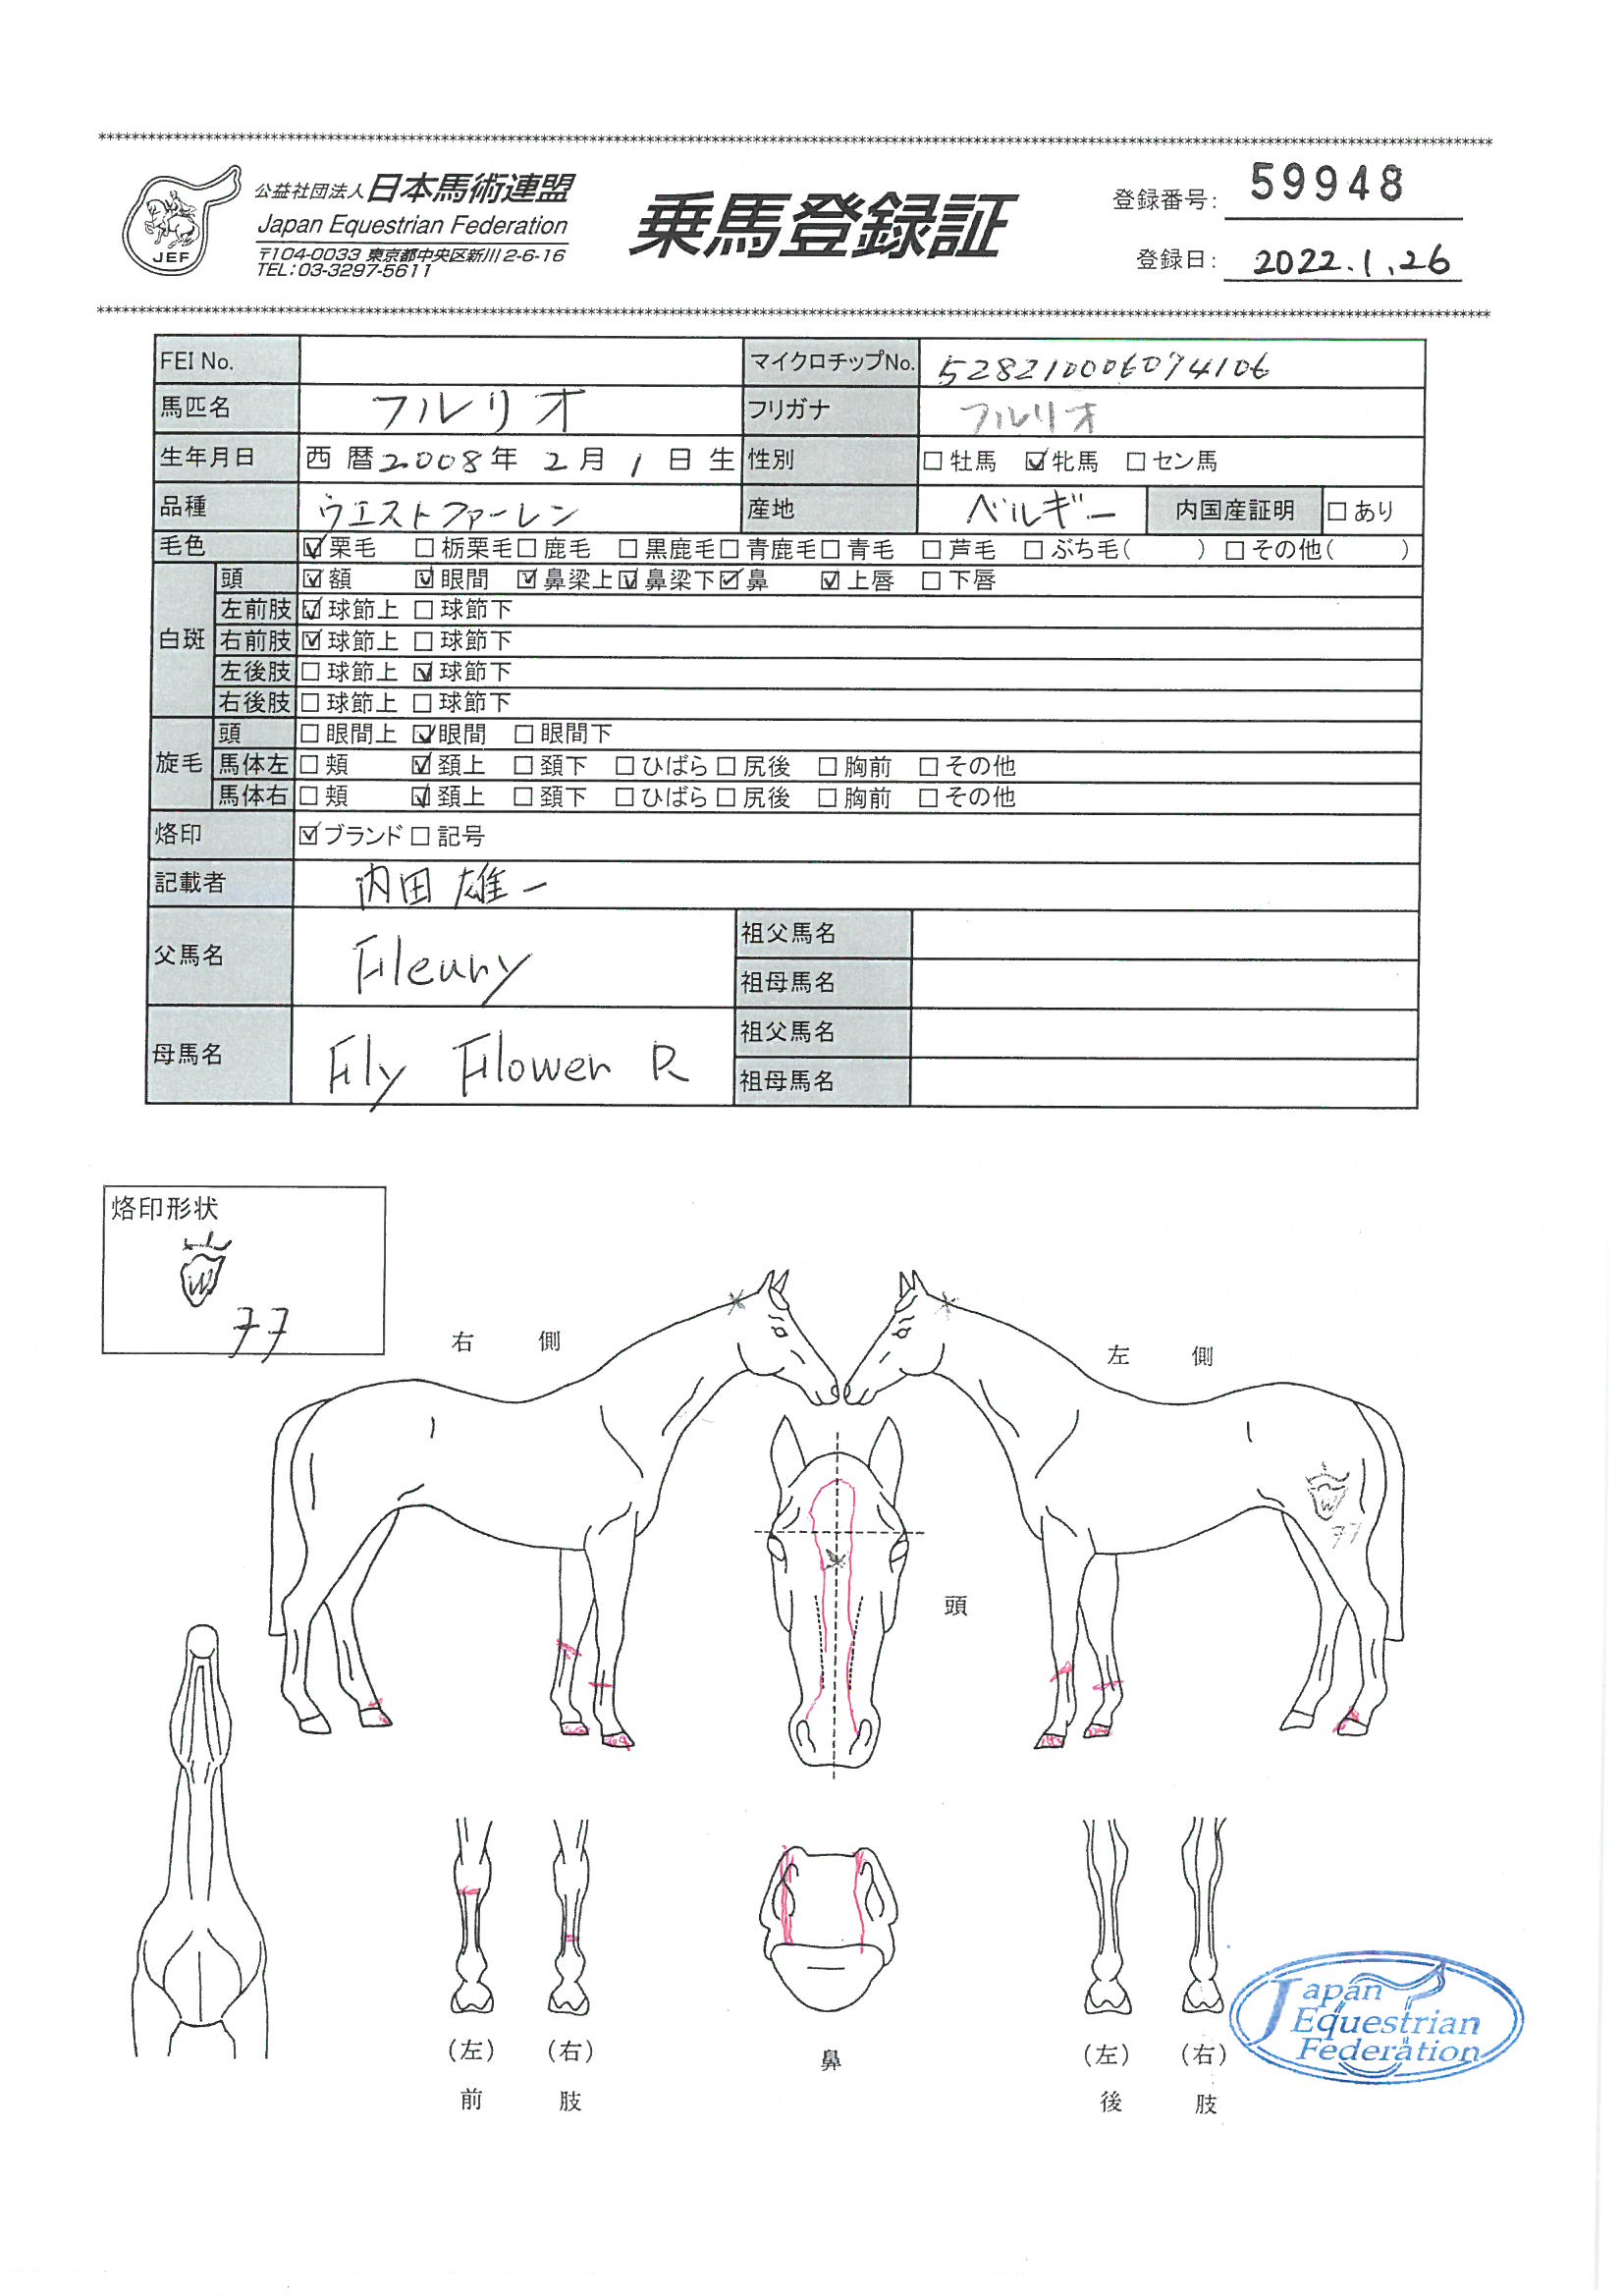 公益社団法人日本馬術連盟
Japan Equestrian Federation
〒104-0033 東京都中央区新川2-6-16
TEL:03-3297-5611
JEF
乗馬登録証
登録番号: 59948
登録日: 2022.1.26
FEI No. マイクロチップNo. 528210006074106
馬匹名 フルリオ フリガナ フルリオ
生年月日 西暦2008年 2月 1日生 性別 □牡馬 ☑牝馬 □セン馬
品種 ウエストファーレン 産地 ベルギー 内国産証明 □あり
毛色 ☑栗毛 □栃栗毛 □鹿毛 □黒鹿毛 □青鹿毛 □青毛 □芦毛 □ぶち毛( ) □その他( )
白斑
頭 ☑額 ☑眼間 ☑鼻梁上 ☑鼻梁下 ☑鼻 ☑上唇 □下唇
左前肢 ☑球節上 □球節下
右前肢 ☑球節上 □球節下
左後肢 □球節上 ☑球節下
右後肢 □球節上 □球節下
旋毛
頭 □眼間上 ☑眼間 □眼間下
馬体左 □頬 ☑頚上 □頚下 □ひばら □尻後 □胸前 □その他
馬体右 □頬 ☑頚上 □頚下 □ひばら □尻後 □胸前 □その他
烙印 ☑ブランド □記号
記載者 内田雄一
父馬名 Fleury 祖父馬名
祖母馬名
母馬名 Fly Flower R 祖父馬名
祖母馬名
烙印形状
W
77
右 側
左 側
W
77
頭
(左) (右)
前 肢
鼻
(左) (右)
後 肢
Japan
Equestrian
Federation